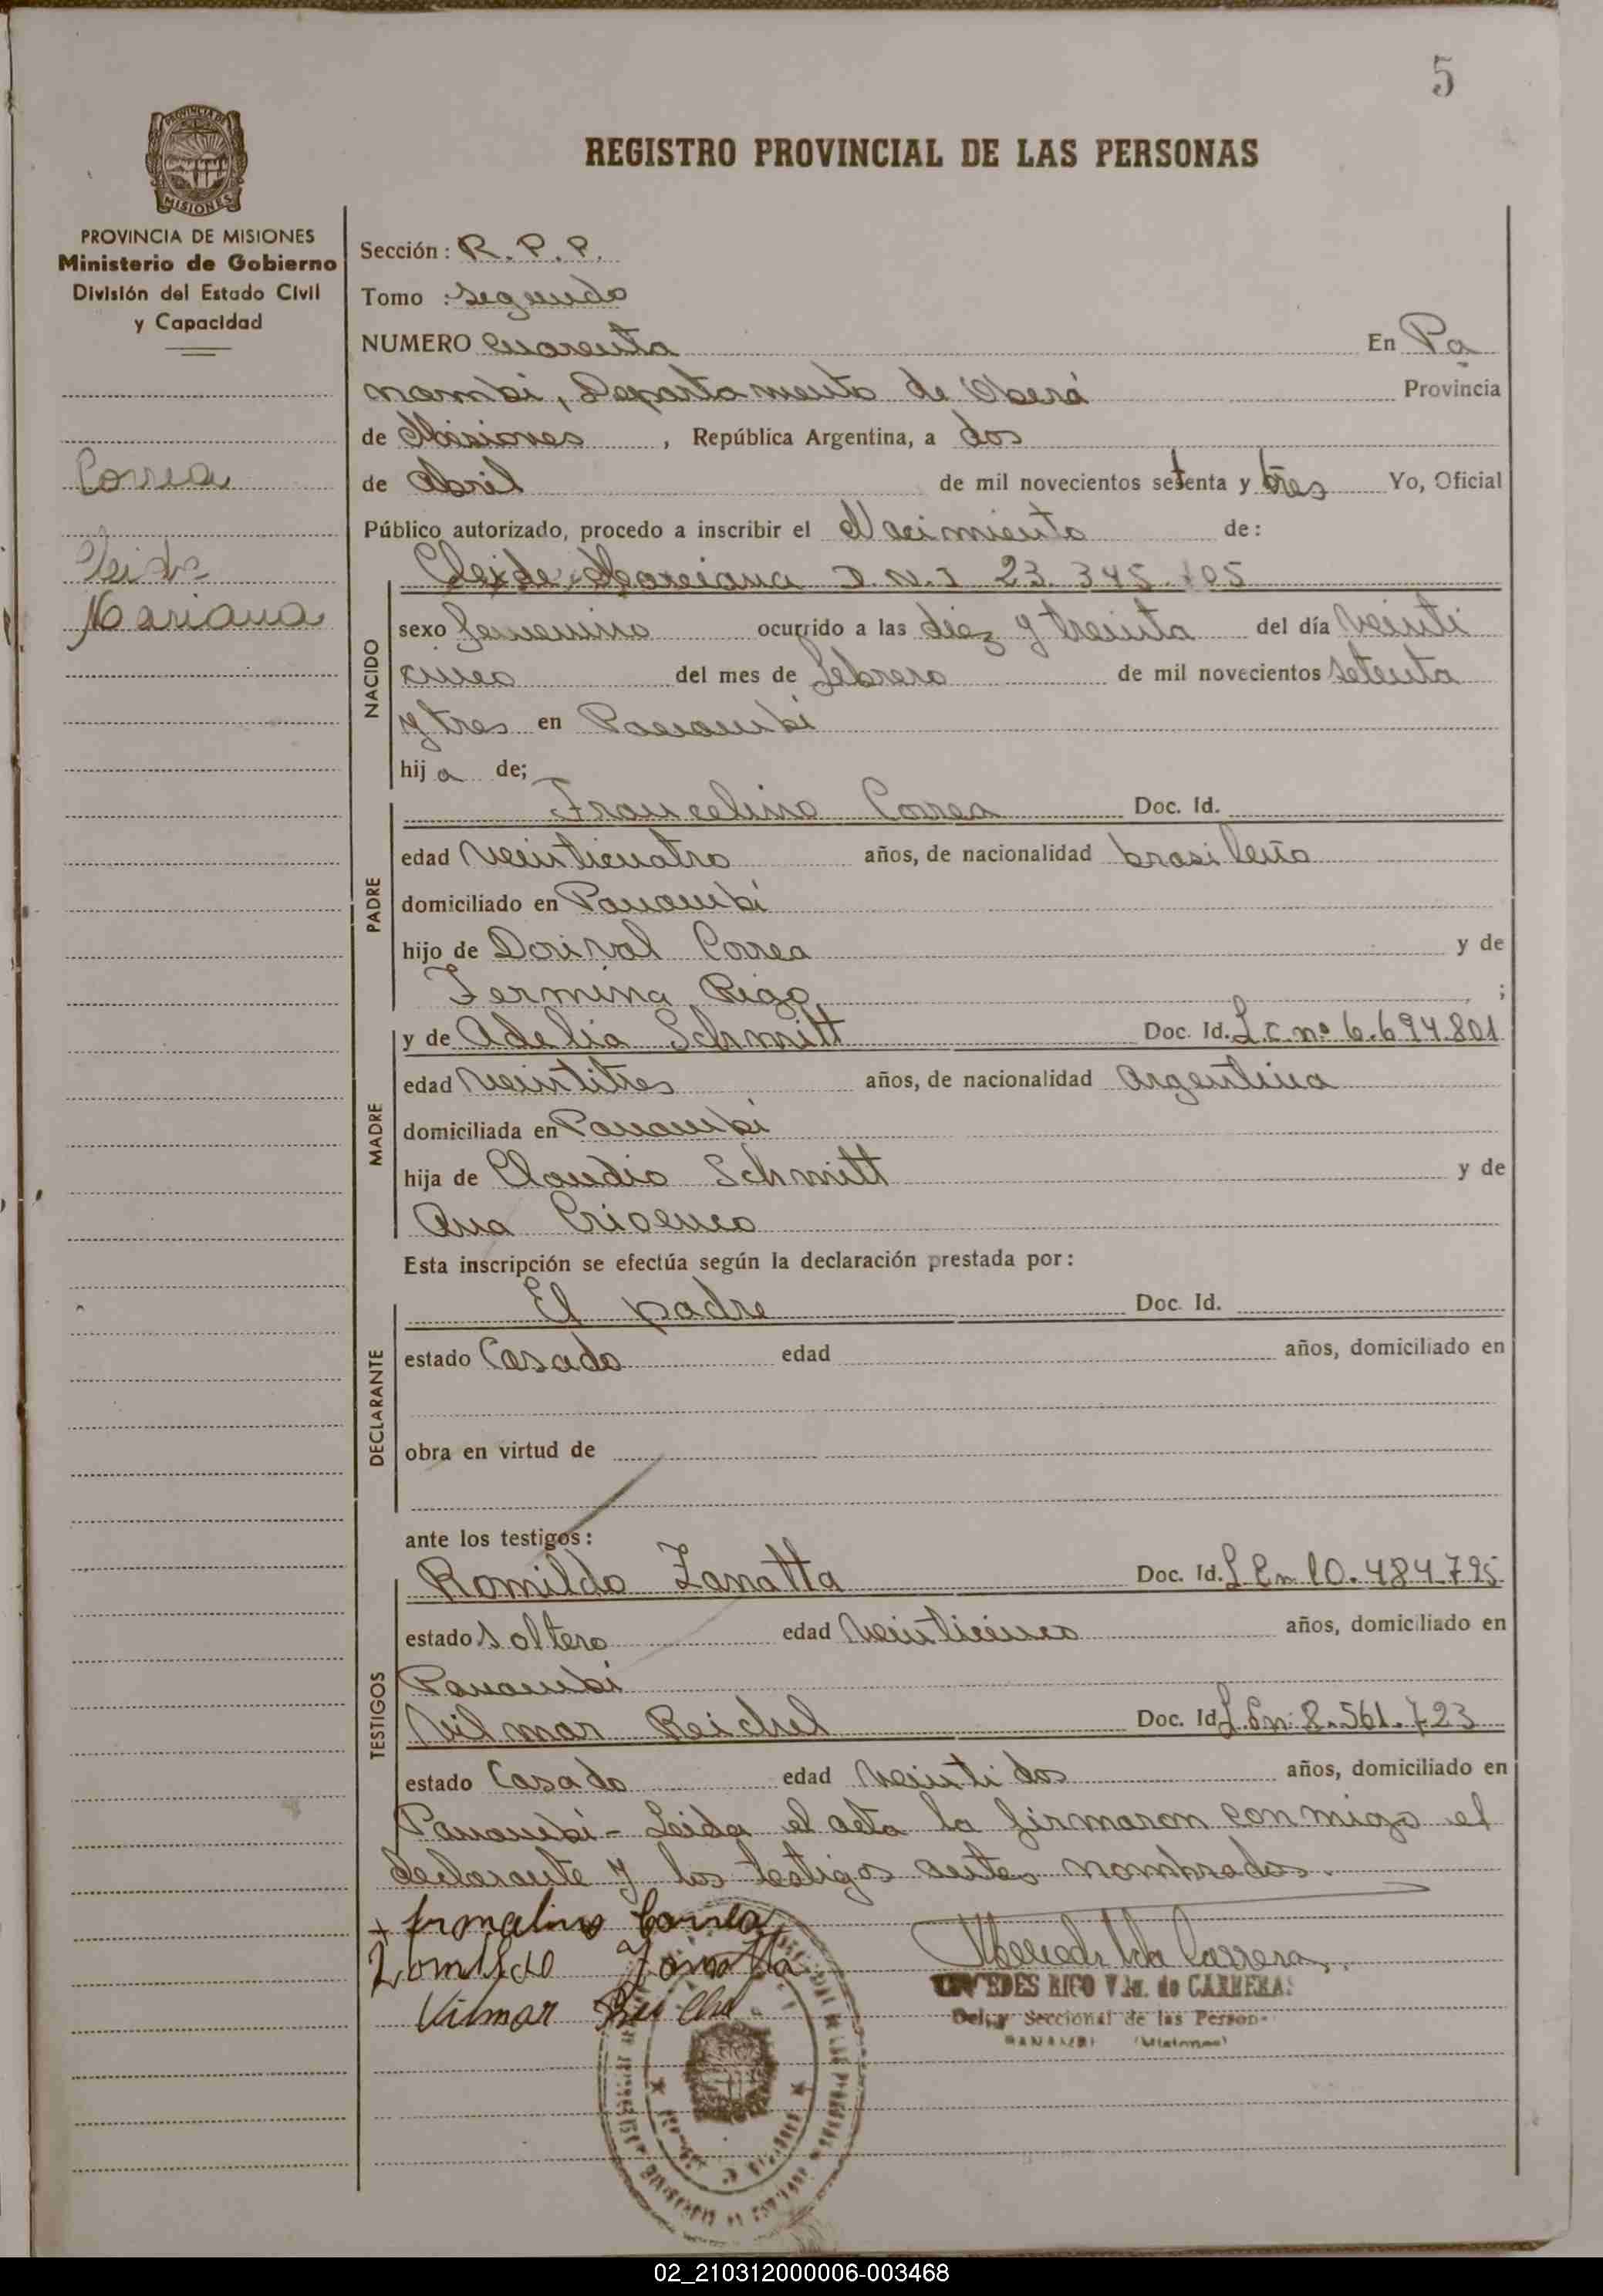 5
REGISTRO PROVINCIAL DE LAS PERSONAS
PROVINCIA DE MISIONES
MISIONES
PROVINCIA DE MISIONES
Ministerio de Gobierno
División del Estado Civil
y Capacidad
Correa
Mariana
Sección: R.P.P.
Tomo: segundo
NUMERO cuarenta En Pa
nambi, Departamento de Oberá Provincia
de Misiones, República Argentina, a dos
de Abril de mil novecientos setenta y tres Yo, Oficial
Público autorizado, procedo a inscribir el Nacimiento de:
Mariana D.N.I 23.345.105
NACIDO
sexo femenino ocurrido a las diez y treinta del día veinti
cinco del mes de febrero de mil novecientos setenta
y tres en Panambi
hija de;
PADRE
Francelino Correa Doc. Id.
edad veinticuatro años, de nacionalidad brasileño
domiciliado en Panambi
hijo de Dorival Correa y de
Fermina Rigo ;
MADRE
y de Adelia Schmitt Doc. Id. L.C. nº 6.694.801
edad veintitres años, de nacionalidad Argentina
domiciliada en Panambi
hija de Claudio Schmitt y de
Ana
Esta inscripción se efectúa según la declaración prestada por:
DECLARANTE
El padre Doc. Id.
estado Casado edad años, domiciliado en
obra en virtud de
ante los testigos:
TESTIGOS
Romildo Zanatta Doc. Id. L.E.n 10.484.795
estado soltero edad veinticinco años, domiciliado en
Panambi
Vilmar Reichel Doc. Id L.E.n: 8.561.723
estado Casado edad veintidos años, domiciliado en
Panambi - Leida el acta la firmaron conmigo el
declarante y los testigos antes nombrados.
Correa
Romildo Zanatta
Vilmar Reichel
Carrera
MERCEDES RICO Vda. de CARRERA
Seccional de las Person
PANAMBI (Misiones)
02_210312000006-003468